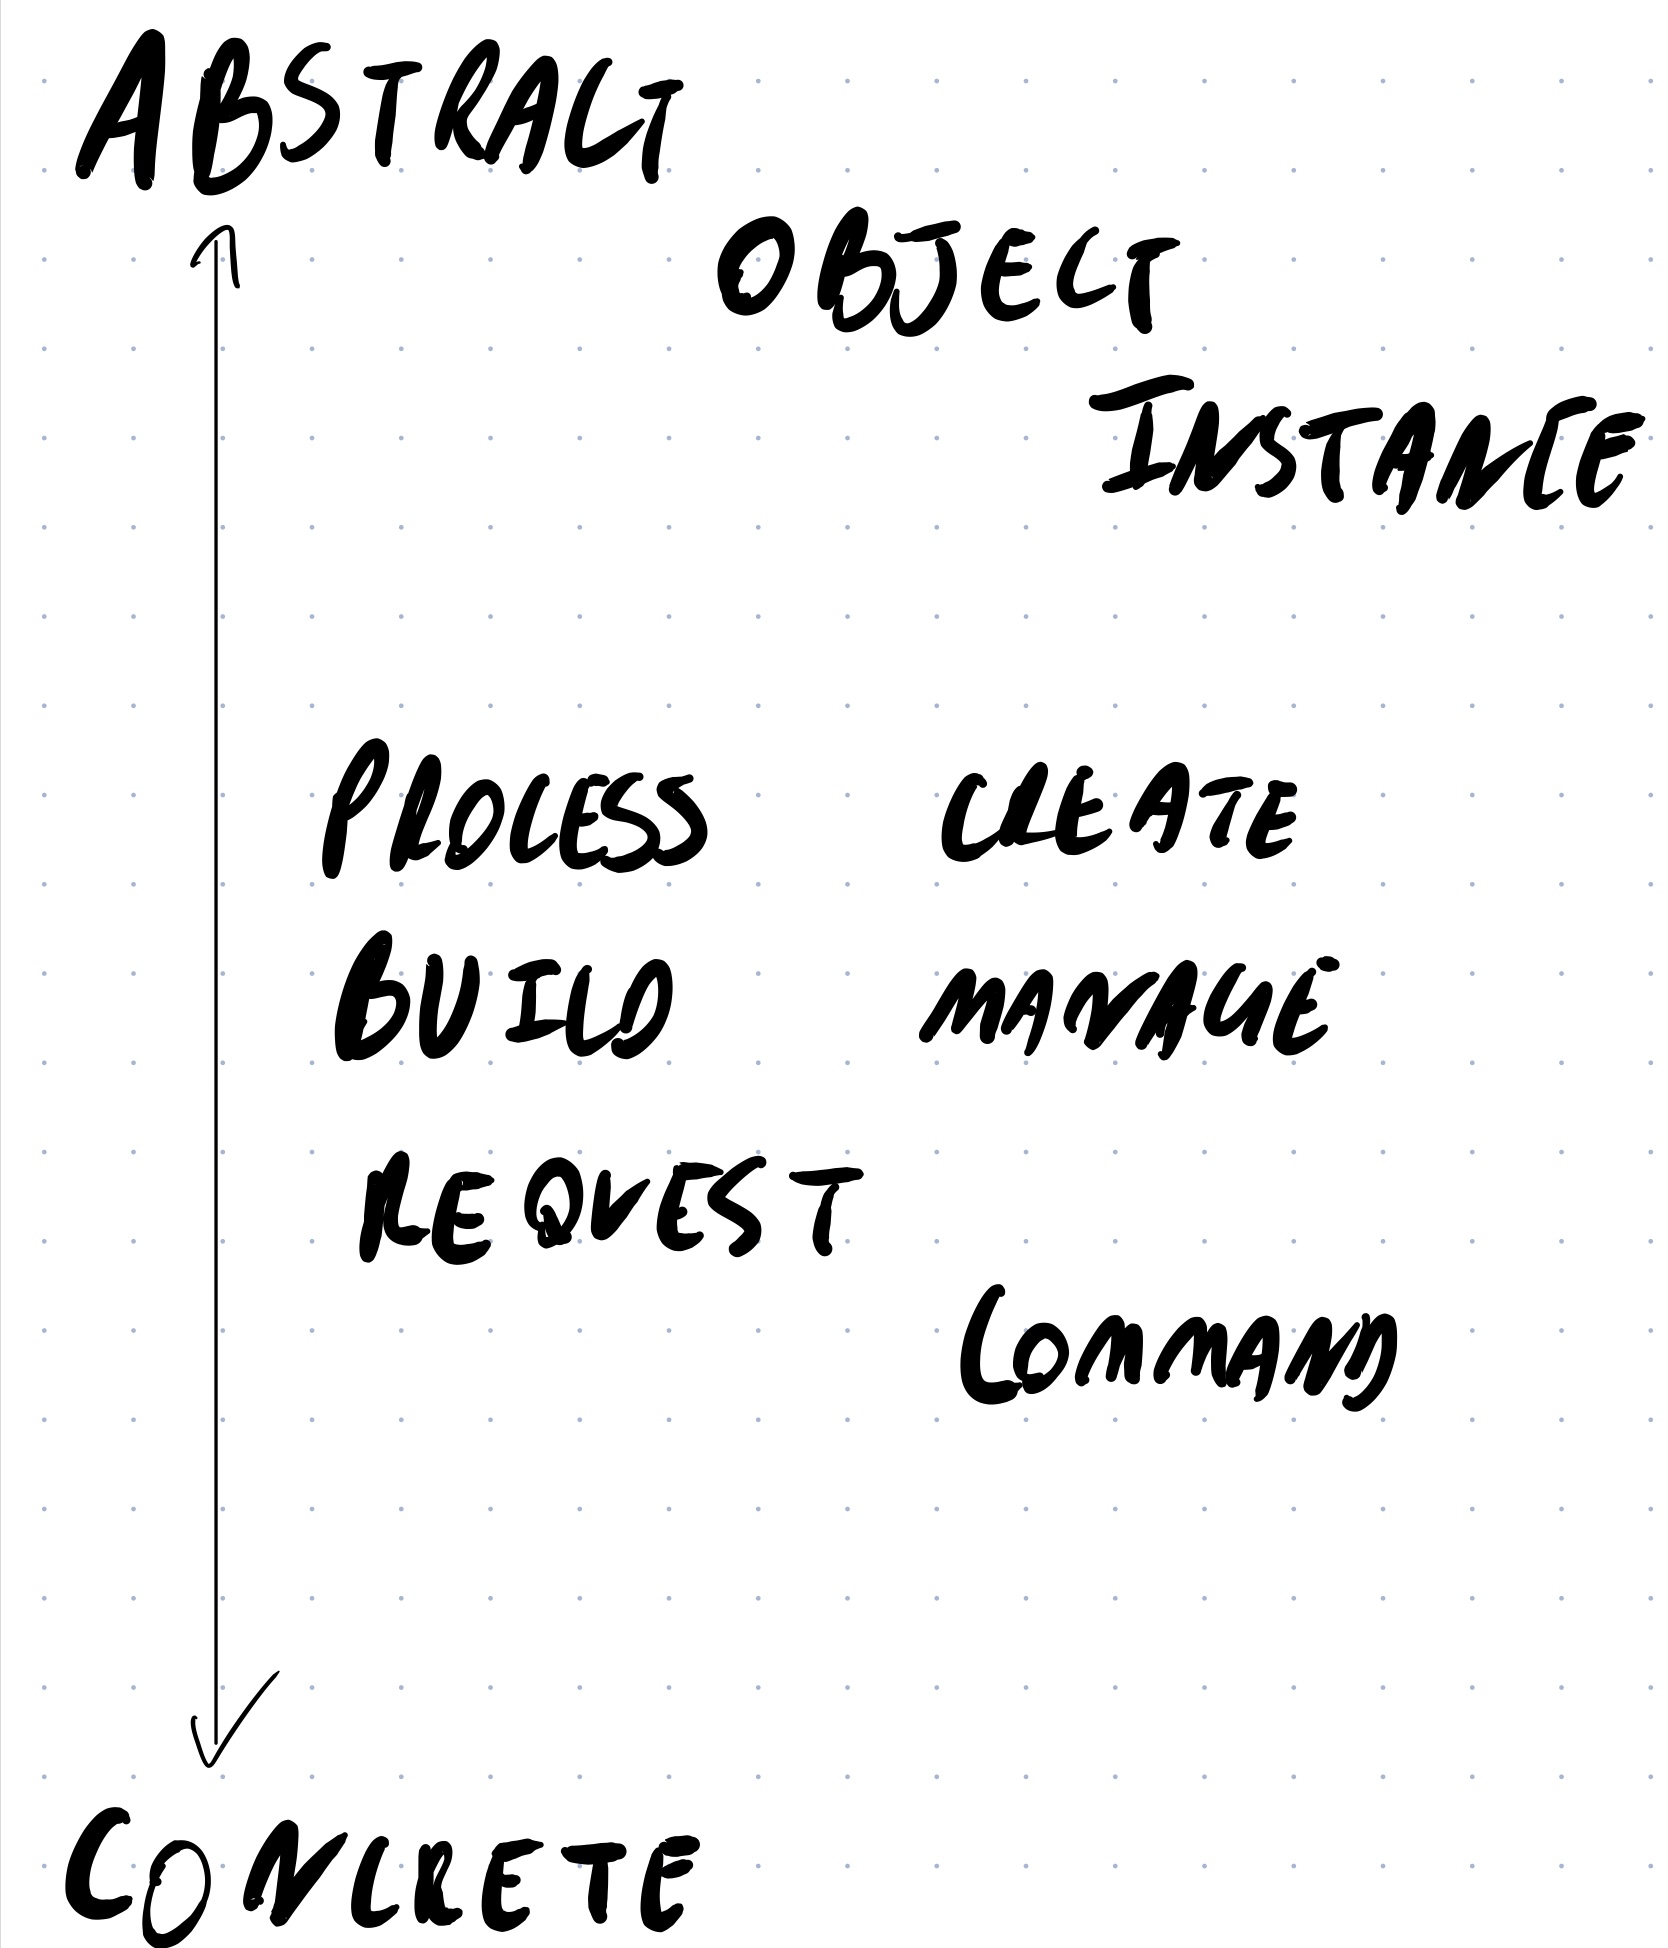 ABSTRACT
OBJECT
INSTANCE
PROCESS CREATE
BUILD MANAGE
REQUEST
COMMAND
CONCRETE